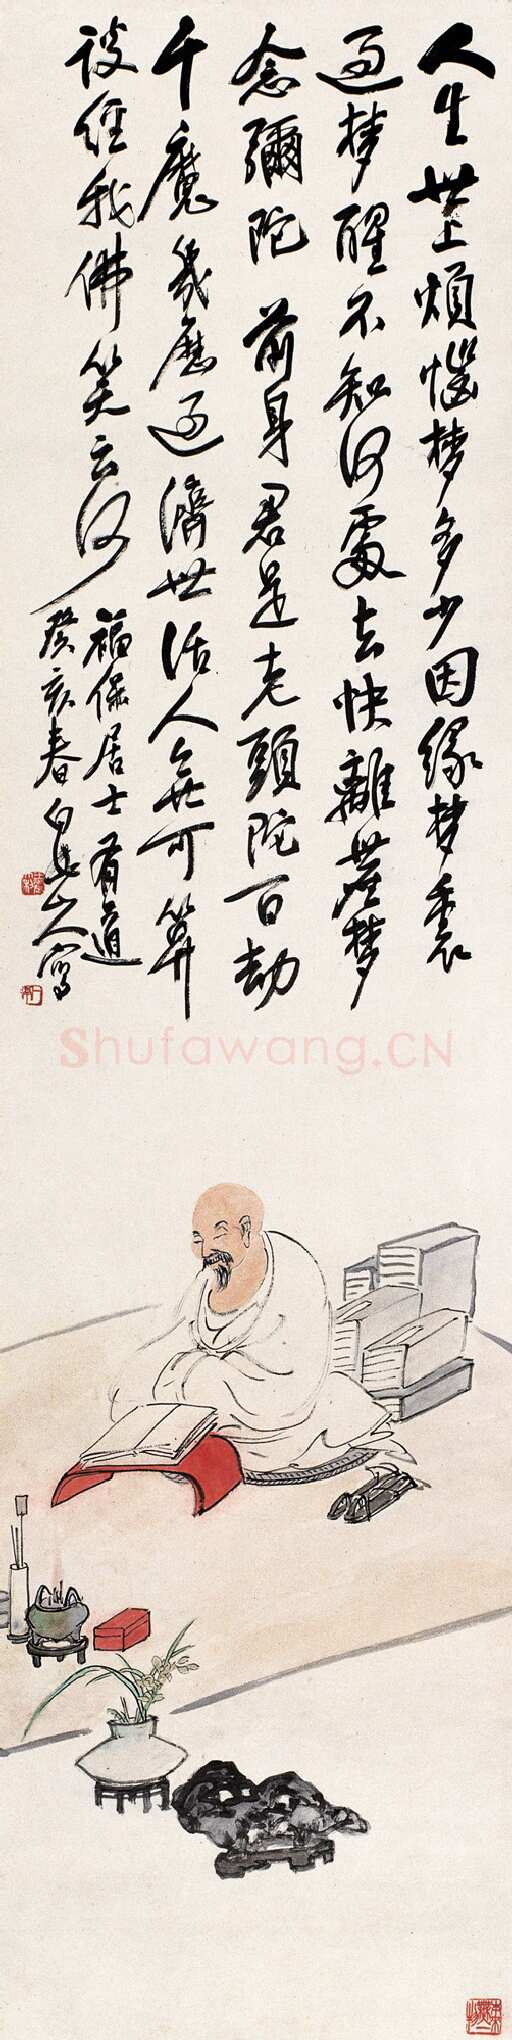 人生世上煩惱夢多少因緣夢裏
過夢醒不知何處去快離塵夢
念彌陀 前身君是老頭陀百劫
千魔幾歷過濟世活人無可算
談經我佛笑云何
福保居士有道
癸亥春白龍山人寫
Shufawang.CN